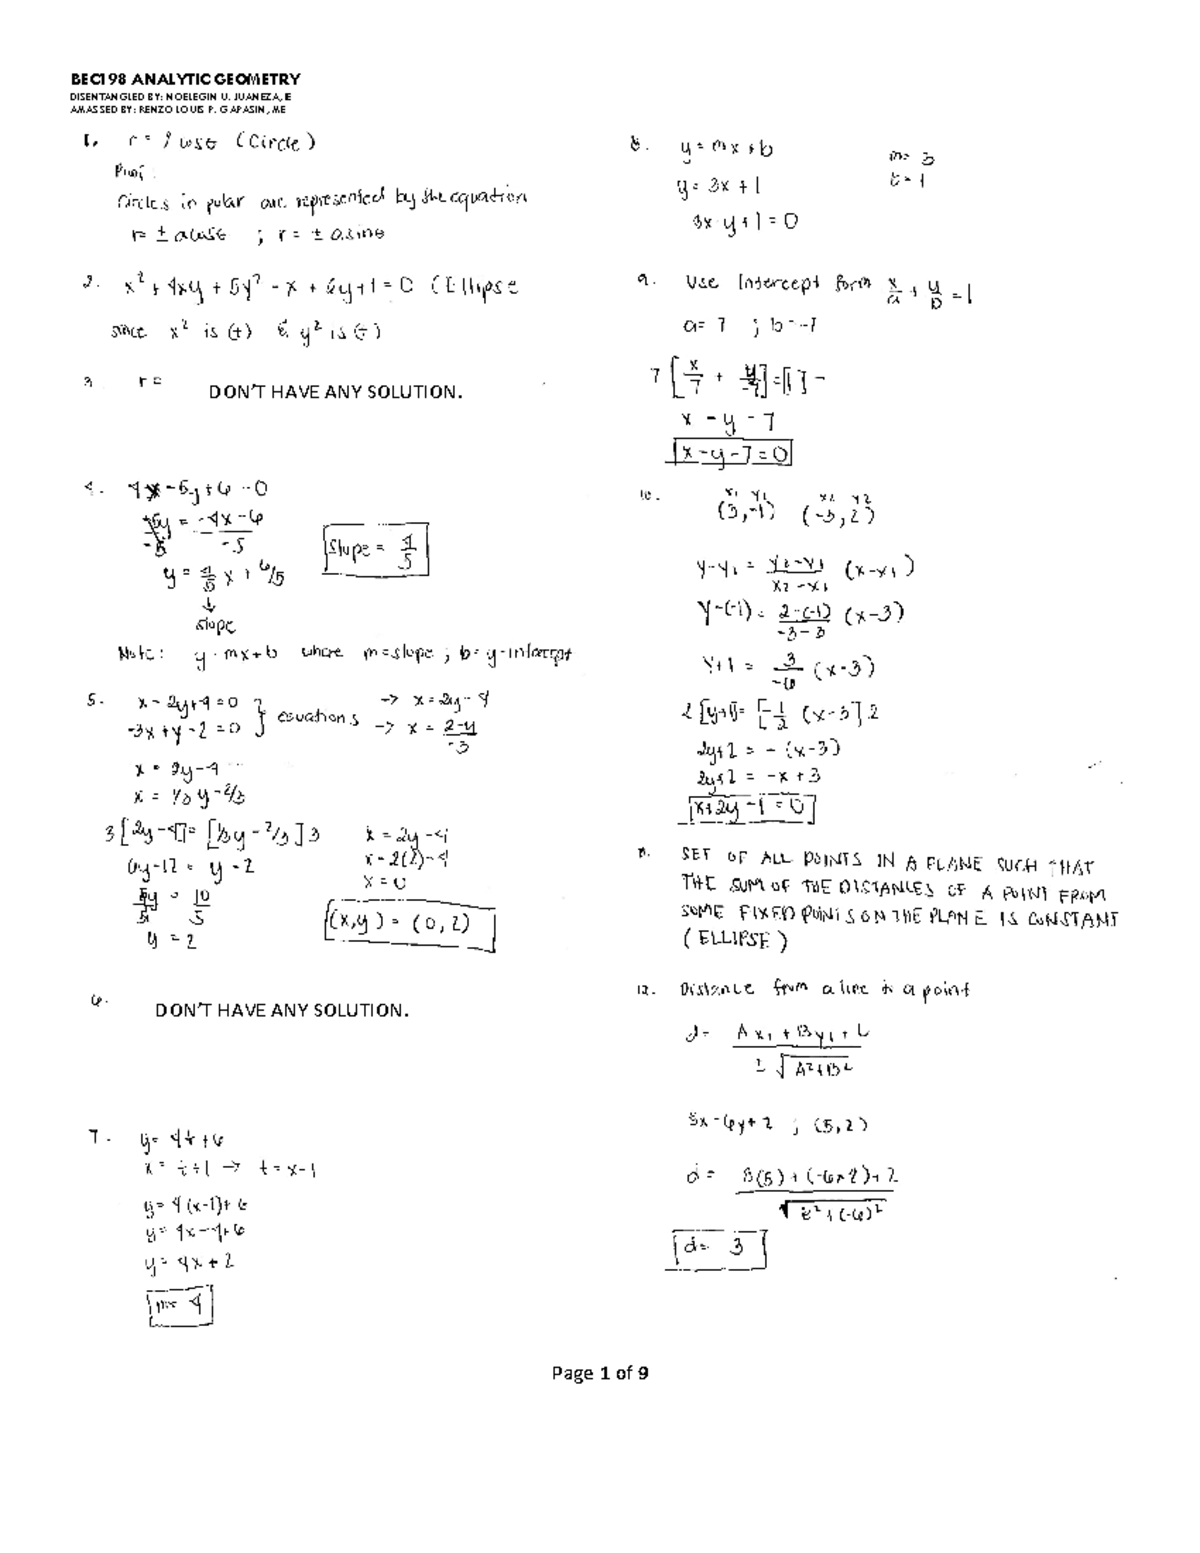 BEC198 ANALYTIC GEOMETRY
DISENTANGLED BY: NOELEGIN U. JUANEZA, E
AMASSED BY: RENZO LOUIS P. GAPASIN, ME
1. r = cosθ (Circle)
Proof:
Circles in polar are represented by the equation
r= ± a cosθ ; r = ± a sinθ
2. x² + 4xy + 5y² - x + 6y + 1 = 0 (Ellipse
since x² is (+) & y² is (+)
3 r =
DON'T HAVE ANY SOLUTION.
4. 4x - 5y + 6 = 0
-5y = -4x - 6
-5 -5
y = 4/5 x + 6/5
↓
slope
slope = 4/5
Note: y = mx + b where m = slope ; b = y-intercept
5. x - 2y + 4 = 0 } equations → x = 2y - 4
-3x + y - 2 = 0 → x = 2-y / -3
x = 2y - 4
x = 1/3 y - 2/3
3 [2y - 4] = [1/3 y - 2/3] 3
6y - 12 = y - 2
5y/5 = 10/5
y = 2
x = 2y - 4
x = 2(2) - 4
x = 0
(x,y) = (0,2)
6.
DON'T HAVE ANY SOLUTION.
7. y = 4t + 6
x = t + 1 → t = x - 1
y = 4(x-1) + 6
y = 4x - 4 + 6
y = 4x + 2
m = 4
8. y = mx + b m = 3
y = 3x + 1 b = 1
3x - y + 1 = 0
9. Use Intercept form x/a + y/b = 1
a = 7 ; b = -7
7 [x/7 + y/-7] = [1] 7
x - y = 7
x - y - 7 = 0
10. x1 y1 x2 y2
(3,-1) (-3,2)
y - y1 = y2 - y1 / x2 - x1 (x - x1)
y - (-1) = 2-(-1) / -3-3 (x - 3)
y + 1 = 3 / -6 (x - 3)
2 [y+1] = [-1/2 (x - 3] 2
2y + 2 = - (x - 3)
2y + 2 = -x + 3
x + 2y - 1 = 0
SET OF ALL POINTS IN A PLANE SUCH THAT
THE SUM OF THE DISTANCES OF A POINT FROM
SOME FIXED POINTS ON THE PLANE IS CONSTANT
(ELLIPSE)
12. Distance from a line to a point
d = Ax1 + By1 + C
± √A²+B²
8x - 6y + 2 ; (5,2)
d = 8(5) + (-6×2) + 2
√8² + (-6)²
d = 3
Page 1 of 9